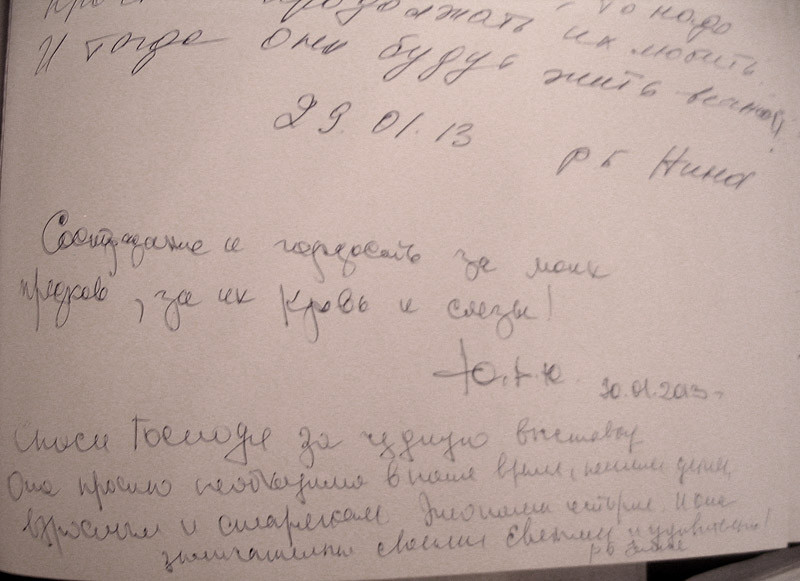 продолжать их любить.
И тогда они будут жить вечной
29.01.13
рб Нина
Сострадание и гордость за моих
предков, за их Кровь и слезы!
30.01.2013г
спаси Господи за чудную выставку
Она просто необходима в наше время, нашим детям,
взрослым и старикам. истории. И они
замечательны своими
рб